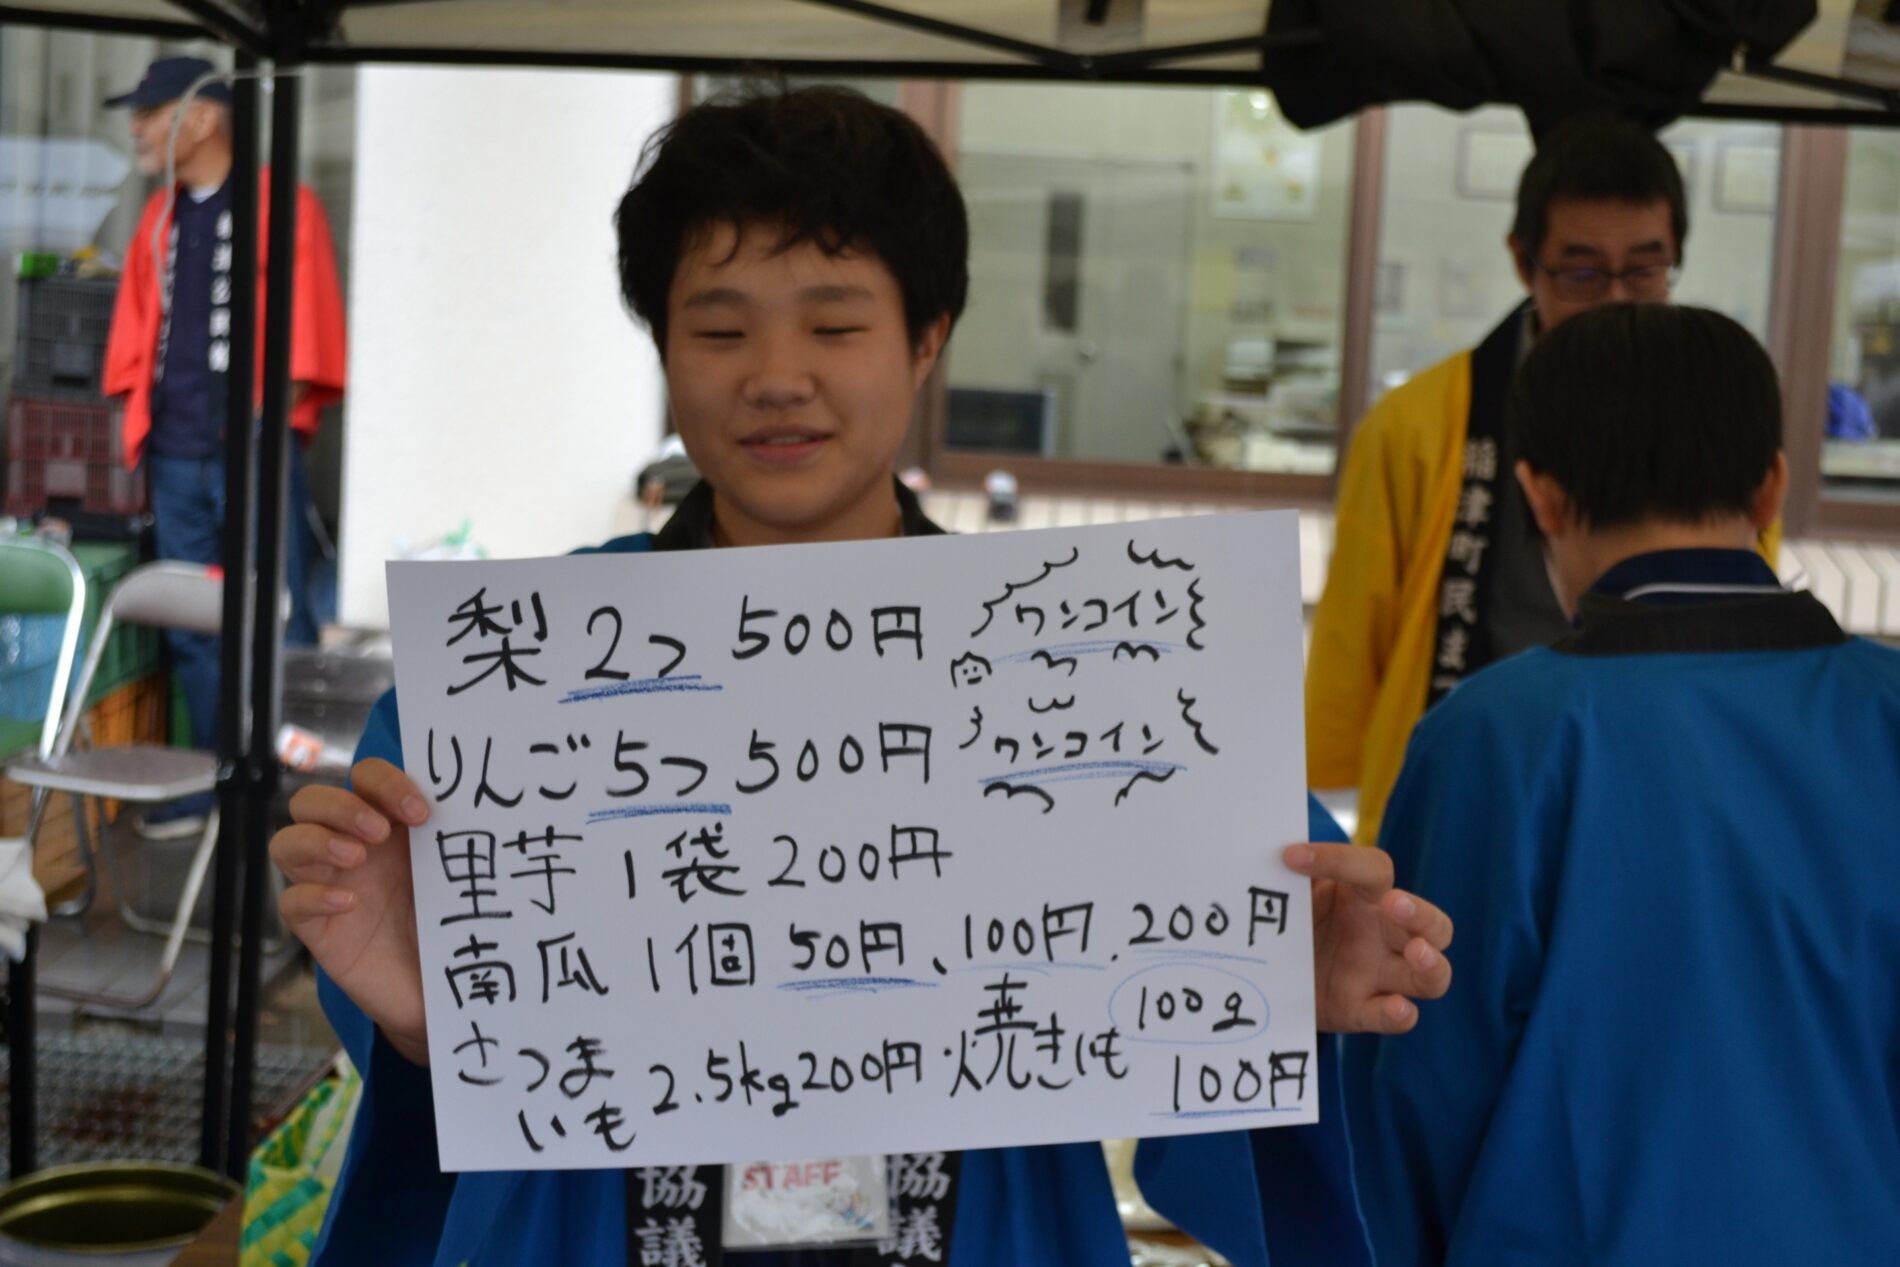 梨 2つ 500円 ワンコイン
りんご 5つ 500円 ワンコイン
里芋 1袋 200円
南瓜 1個 50円、100円、200円
さつまいも 2.5kg 200円 焼きいも 100g 100円
稲津町民主
STAFF
協議
協議